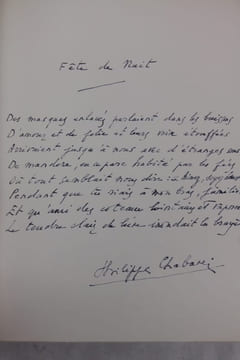 Fête de Nuit
Des masques enlacés parlaient dans les buissons
D'amour et de folie et leurs voix étouffées
Arrivaient jusqu'à nous avec d'étranges sons
De mandore, en ce parc habité par les fées
Où tout semblait nous dire :
Pendant que tu riais à mon bras,
Et qu'ami des coteaux et
Le tendre clair de lune inondait la
Philippe Chabaneix